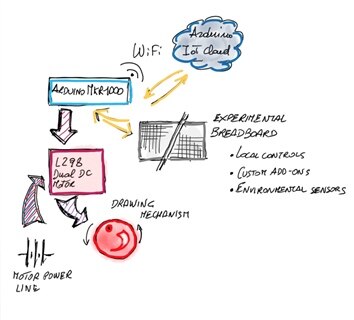 WiFi
Arduino
IoT Cloud
ARDUINO MKR1000
EXPERIMENTAL
BREADBOARD
• LOCAL CONTROLS
• CUSTOM ADD-ONS
• ENVIRONMENTAL SENSORS
L298
Dual DC
MOTOR
DRAWING
MECHANISM
MOTOR POWER
LINE